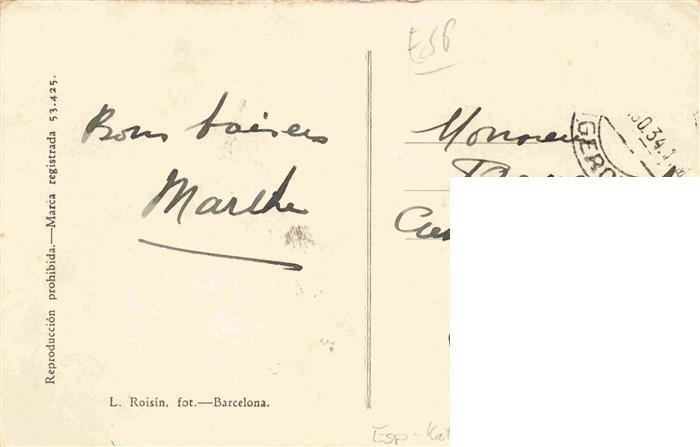 Reproducción prohibida.—Marca registrada 53.425.
Bons baisers
Marthe
L. Roisin, fot.—Barcelona.
ESP
Monsieur
30.34.1
GERO
Esp - Kat